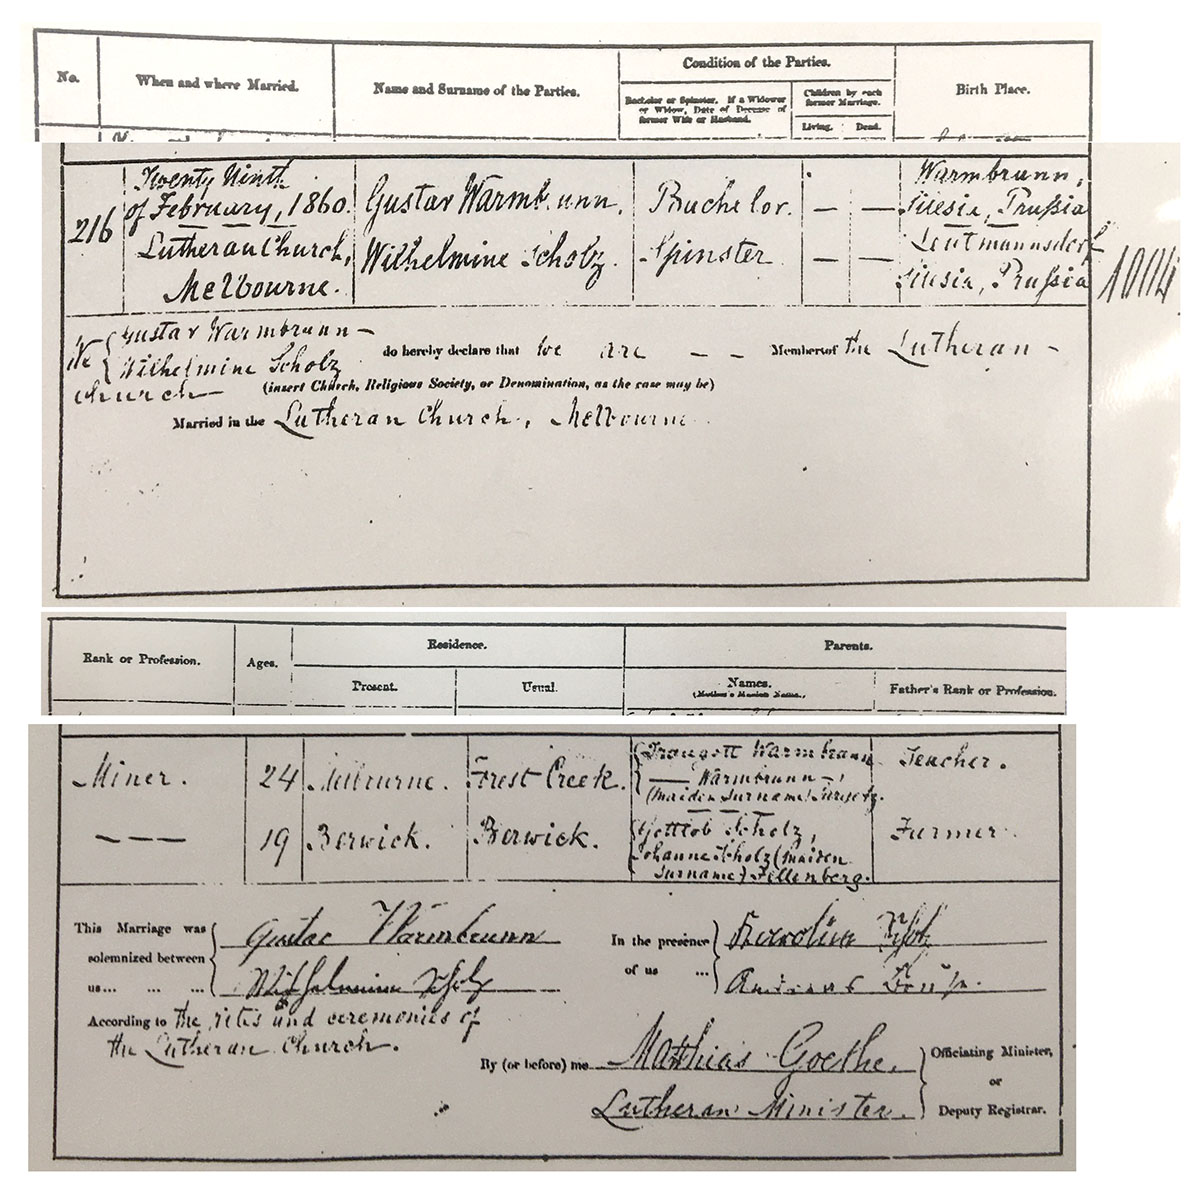 No. When and where Married. Name and Surname of the Parties. Condition of the Parties. Birth Place.
Bachelor or Spinster. If a Widower or Widow, Date of Decease of former Wife or Husband. Children by each former Marriage.
Living. Dead.
216 Twenty Ninth of February, 1860. Lutheran Church, Melbourne.
Gustav Warmbrunn. Bachelor. — — Warmbrunn, Silesia, Prußia
Wilhelmine Scholz. Spinster — — Leutmannsdorf Silesia, Prußia
1004
We { Gustav Warmbrunn —
Wilhelmine Scholz do hereby declare that we are — — Members of the Lutheran —
church — (insert Church, Religious Society, or Denomination, as the case may be)
Married in the Lutheran Church, Melbourne
Rank or Profession. Ages. Residence. Parents.
Present. Usual. Names. (Mother's Maiden Name.) Father's Rank or Profession.
Miner. 24 Melbourne. Forest Creek. Traugott Warmbrunn Teacher.
— Warmbrunn —,
(maiden surname)
— — — 19 Berwick. Berwick. Gottlob Scholz, Farmer.
Johanne Scholz (maiden
surname) Fellenberg.
This Marriage was solemnized between us... ... ... { Gustav Warmbrunn
Wilhelmine Scholz
In the presence of us ... {
According to the rites and ceremonies of
the Lutheran Church.
By (or before) me Matthias Goethe.
Lutheran Minister. } Officiating Minister, or Deputy Registrar.